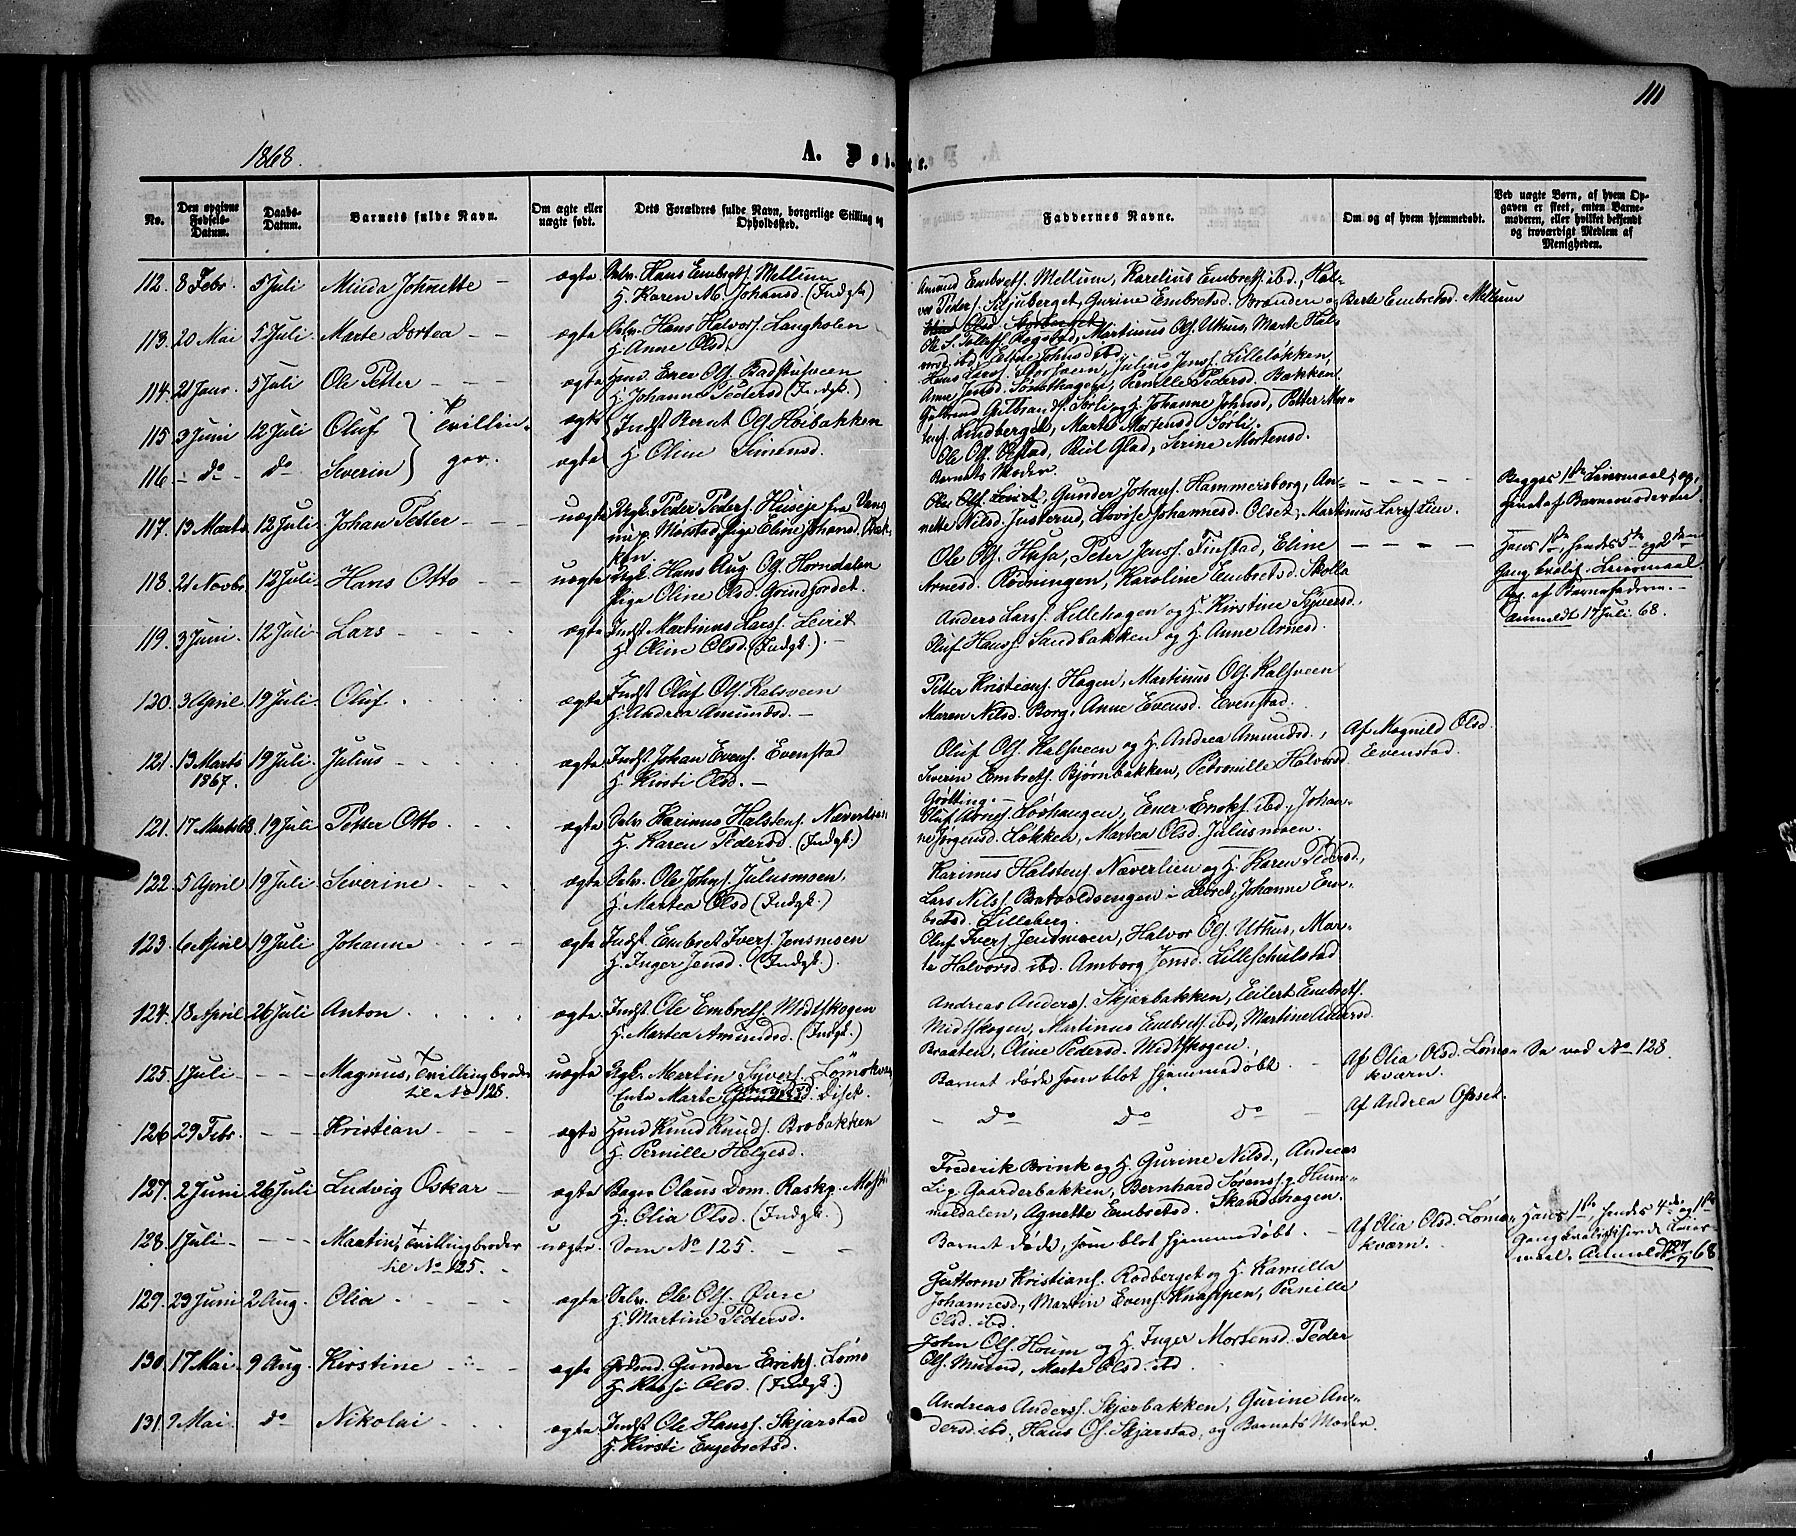 111
1868.
A. Døbte.
No.
Den opgivne Fødsels-Datum.
Daabs-Datum.
Barnets fulde Navn.
Om ægte eller uægte født.
Dets Forældres fulde Navn, borgerlige Stilling og Opholdssted.
Faddernes Navne.
Om og af hvem hjemmedøbt.
Ved uægte Børn, af hvem Opgaven er skeet, enten Barnemoderen, eller hvilket bekjendt og troværdigt Medlem af Menigheden.
112. 8 Febr. 5 Juli Minda Johnette — ægte Selv. Hans Embretss. Mellum
H. Karen M. Johansd. (Indgk.)
Amund Embretss. Mellum, Karelius Embretss. ibd., Hal-
vor Peders. Gurine Embretsd. Brænden og Berte Embretsd. Mellum
113. 20 Mai 5 Juli Marte Dortea — ægte Selv. Hans Halvorss. Langholen
H. Anne Olsd.
Ole S. Rogstad, Martinus Ols. Uthus, Marte Hal-
vorsd. ibd., Johnsd. ibd.
114. 21 Janr. 5 Juli Ole Petter — ægte Huusmd. Even Ols. Badstuveen
H. Johanne Pedersd. (Indgk.)
Hans Larss. Storsveen, Julius Jenss. Lilleløkken,
Anne Jensd. Pernille Pedersd. Bækken
115 3 Juni 12 Juli Oluf } Tvillin- ægte Indst Bernt Ols. Høibakken
116 — do do Severin } ger. ægte H. Oline Simensd.
Guttorm Gulbrands. Sørli og H. Johanne Johnsd., Petter Mor-
tens. Lundberget, Marte Mortensd. Sørli.
Ole Ols. Ulstad, Poul Glad, Serine Mortensd.
Barnets Moder.
117. 13 Marts 12 Juli Johan Petter — uægte Ungk. Peder Peders. Huseje fra Vang
Pige Eline Johans.
Ole Ols. Gunder Johans. Hammersborg, An-
nette Nilsd. Justerud, Lovise Johannesd. Olset, Martinus Larss. Lien.
Begges 1ste Leiermaal, og
118. 21 Novbr. 12 Juli Hans Otto — uægte Ungk. Hans Aug. Ols. Horndalen
Pige Oline Olsd. Grindfordet.
Ole Ols. Husa, Peter Jenss. Finstad, Eline
Arnesd. Rødningen, Karoline Embretsd. Skolla
Hans 1ste, hendes 5te
Gang Leiermaal
Opg. af Barnefaderen. —
anmeldt 17 Juli 68.
119. 3 Juni. 12 Juli Lars — ægte Indst Martinus Larss. Leiret
H. Oline Olsd. (Indgk.) —
Anders Larss. Lillehagen og H. Kirstine Syversd.
Oluf Hanss. Sandbakken og H. Anne Arnesd.
120. 3 April 19 Juli Oluf. ægte Indst Oluf Ols. Kalsveen
H. Andrea Amundsd. —
Petter Kristians. Hagen, Martinus Ols. Kalsveen
Maren Nilsd. Borg, Anne Evensd. Evenstad.
121. 13 Marts 19 Juli Julius — ægte Indst Johan Evens. Evenstad
1867. H. Kirsti Olsd. —
Oluf Ols. Kalsveen og H. Andrea Amundsd.,
Severin Embretss. Bjørnbakken, Petronille Halvorsd.
Grøtting. —
Af Magnild Olsd
Evenstad.
121. 17 Marts 68 19 Juli Petter Otto. ægte Selv. Karinus Halstens. Næverlien
H. Karen Pedersd. (Indgk.)
Oluf Arnes. Løvhaugen, Ener Enoks. ibd., Johan-
ne Jørgensd. Løkken, Martea Olsd. Julusmoen.
122. 5 April 19 Juli Severine. ægte Selv. Ole Johns. Julusmoen.
H. Martea Olsd (Indgk.)
Karinus Halstens. Næverlien og H. Karen Pedersd,
Lars Nilss. i Leiret, Johanne Em-
bretsd. Lilleberg.
123. 6 April 19 Juli Johanne ægte Indst. Embret Ivers. Jensmoen
H. Inger Jensd. (Indgk.)
Oluf Ivers. Jensmoen, Halvor Ols. Uthus, Mar-
te Halvorsd. ibd. Amborg Jensd. Lilleschulstad
124. 18 April 26 Juli Anton. ægte Indst Ole Embretss. Midtskogen
H. Martea Amundsd. (Indgk.)
Andreas Anderss. Skjærbakken, Eilert Embretss.
Midtskogen, Martinus Embretss. ibd, Martine Andersd
Braaten, Oline Pedersd. Midtskogen.
125. 1 Juli — — Magnus, Tvillingbroder uægte Ungk. Martin Syvers. Lømokværn
til No 128. Enke Marte Diset.
Barnet døde som blot hjemmedøbt. —
Af Olia Olsd. Lømo-
kværn.
Se ved No 128.
126 29 Febr. — — Kristian — ægte Huusmd Knud Knuds. Brobakken
H. Pernille Helgesd.
do do do —
Af Andrea Opset.
127. 2 Juni 26 Juli Ludvig Oskar — ægte Bager Olaus Dom. Raskg.
H. Olia Olsd. (Indgk.)
Frederik Brink og H. Gurine Nilsd., Andreas
Lip. Gaarderbakken, Bernhard Sørens. Hum-
meldalen, Agnette Embretsd. Skardshagen.
128. 1 Juli — — Martin, Tvillingbroder uægte Som No 125. — —
til No 125.
Barnet døde, som blot hjemmedøbt.
Af Olia Olsd. Lømo-
kværn.
Hans 1ste, hendes 4de og 1ste
Gang kvalificerede Leier-
maal. Anmeldt 27/7 68
129. 23 Juni 2 Aug. Olia — ægte Selv. Ole Ols. Øvre
H. Martine Pedersd.
Guttorm Kristians. Rodberget og H. Kamilla
Johannesd., Martin Evens. Knappen, Pernille
Olsd. ibd.
130. 17 Mai 9 Aug. Kirstine — ægte Grdmd. Gunder Eriks. Lømo
H. Olsd. (Indgk.)
John Ols. Houm og H. Inger Mortensd. Peder
Ols. Marte Olsd. ibd.
131 7 Mai do Nikolai — ægte Indst Ole Hanss. Skjærstad
H. Kirsti Engebretsd.
Andreas Anderss. Skjærbakken, Gurine An-
dersd. ibd, Hans Ols. Skjærstad, og Barnets Moder.